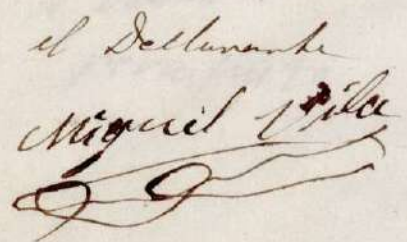 el Declarante
Miguel Vila